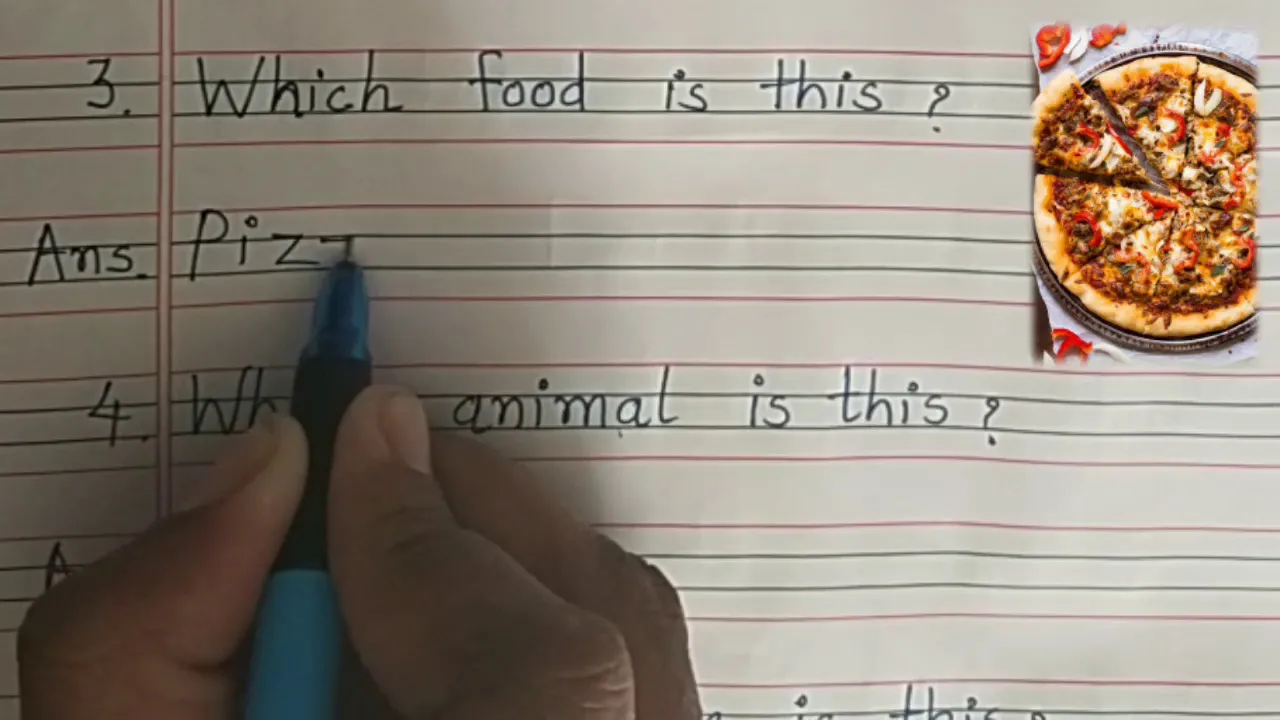 3. Which food is this ?
Ans. Piz
4. Wh animal is this ?
A
is this ?